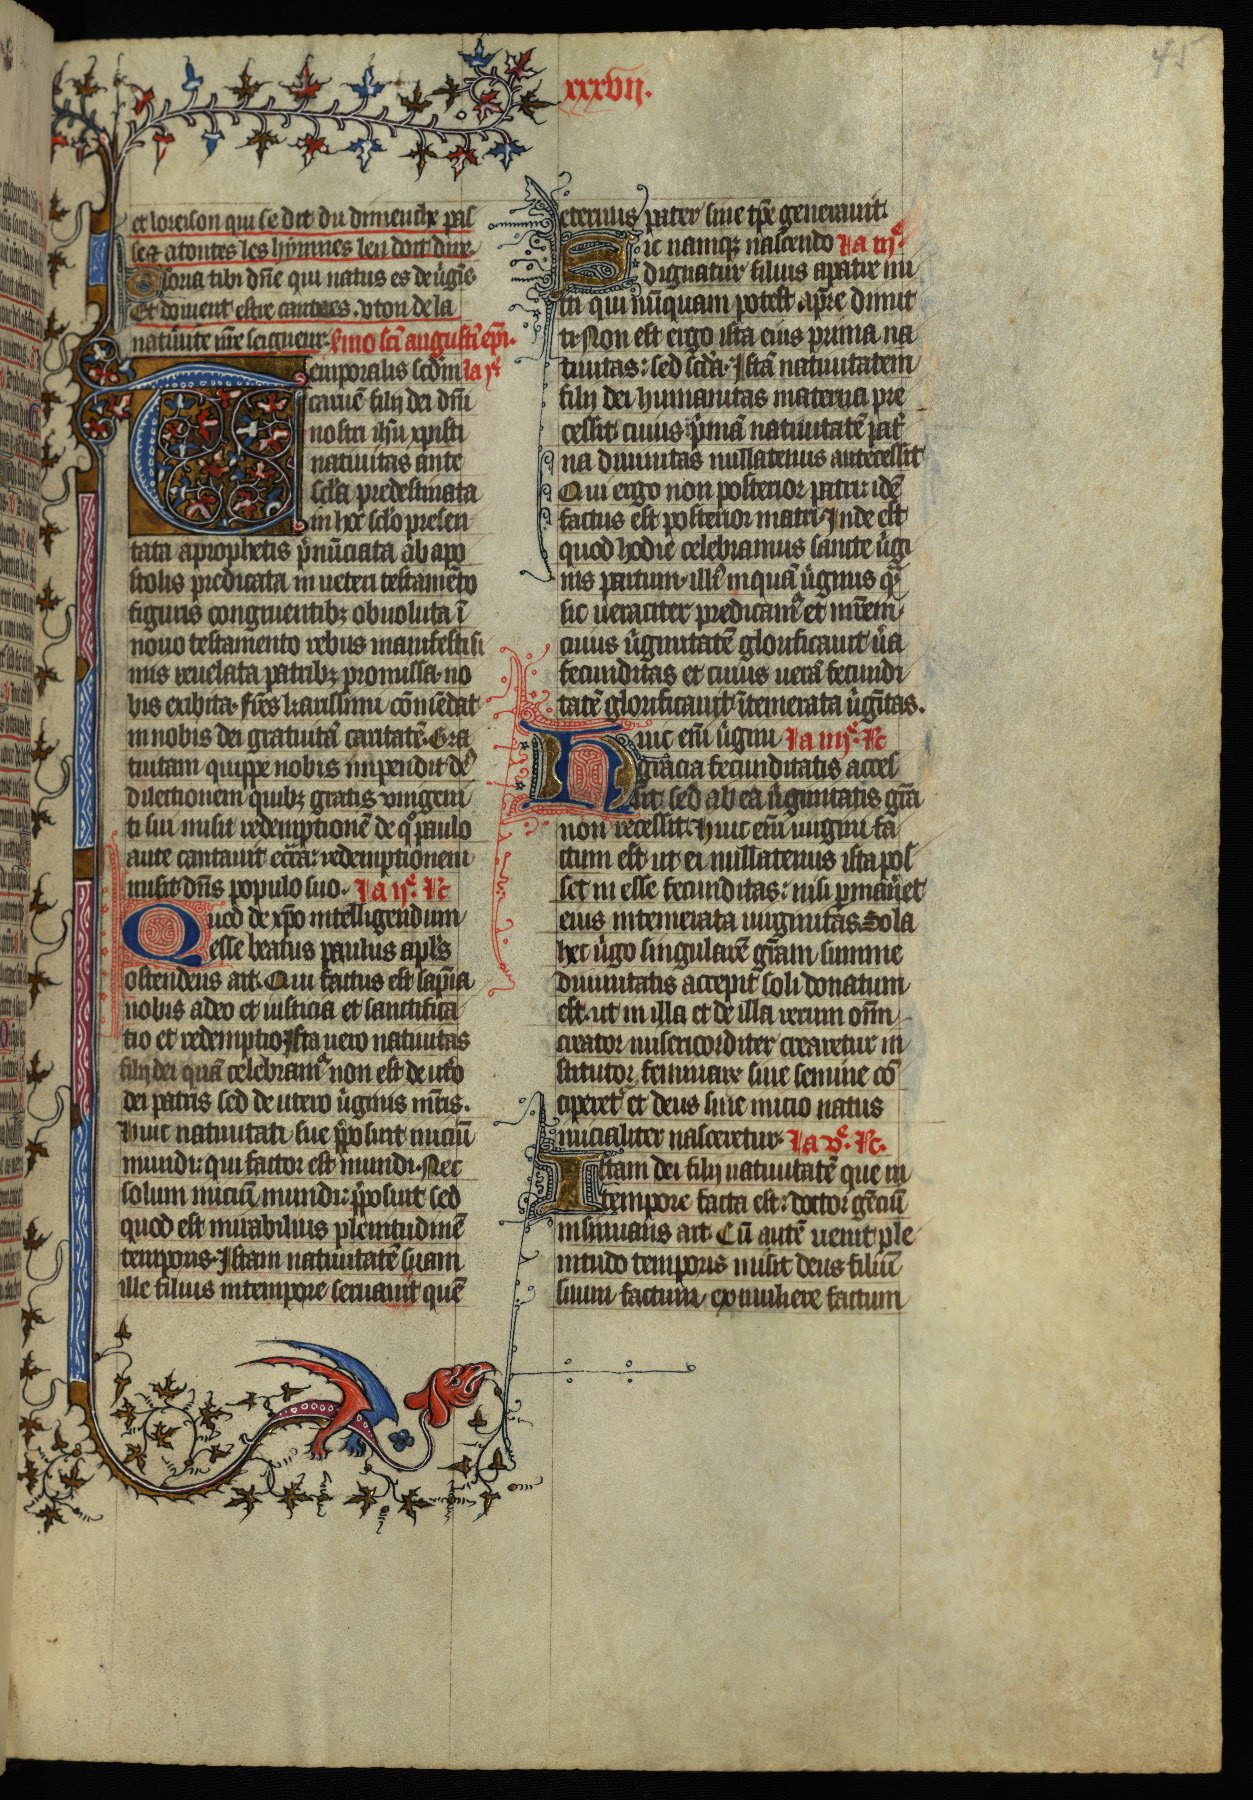 xxxvii.
45
et loreison qui se dit du dimenche pas
se⁊ a toutes les hympnes len doit dire
Gloria tibi dñe qui natus es de ũgĩe
Et doiuent estre cantees . v ton de la
natiuite nr̃e seigneur. Sermo sc̃i augustĩ ep̃i.
Temporalis scd̃m la .i.ͤ
carnē filij dei dñi
nostri ihũ xp̃isti
natiuitas ante
sc̃la predestinata
in hoc sc̃lo presen
tata a prophetis p̃nũciata ab apo
stolis predicata in ueteri testamẽto
figuris congruentibꝫ obuoluta ĩ
nouo testamento rebus manifestissi
mis reuelata patribꝫ promissa. no
bis exibita. fr̃es karissimi cõmẽdat
in nobis dei gratuitã caritatẽ. Gra
tuitam quippe nobis impendit de
dilectionem quibꝫ gratis vnigeni
ti sui misit redemptionẽ de qͦ paulo
ante cantauit ecc̃ia: redemptionem
misit dñs populo suo. La .ii.ͤ R̃
Quod de xp̃o intelligendum
esse beatus paulus apl̃s
ostendens ait. Qui factus est sapiẽa
nobis a deo et iusticia et sanctifica
tio et redemptio. Ista uero natiuitas
filij dei quã celebramᷣ non est de ut̃o
dei patris sed de utero ũginis mr̃is.
Huic natiuitati sue p̃posuit iniciũ
mundi: qui factor est mundi. Nec
solum iniciũ mundi: p̃posuit sed
quod est mirabilius plenitudinẽ
temporis. Istam natiuitatẽ suam
ille filius in tempore seruauit quẽ
eternus pater sine tp̃e generauit.
Sic namqꝫ nascendo La .iii.ͤ
dignatur filius a patre mi
tti qui nũquam potest a pr̃e dimit
ti. Non est ergo ista eius prima na
tiuitas: sed scd̃a. Istã natiuitatem
filij dei humanitas materna pre
cessit. cuius p̃mã natiuitatẽ pat͛
na diuinitas nullatenus antecessit
Qui ergo non posterior patri: idẽ
factus est posterior matri. Inde est
quod hodie celebramus sancte ũgi
nis partum. illiꝰ in quã ũginis qͣ
sic ueraciter predicamᷣ et mr̃em
cuius ũginitatẽ glorificauit ũa
fecunditas et cuius uerã fecundi
tatẽ glorificauit ĩtemerata ũgĩtas.
Huic em̃ ũgini La .iiii.ͤ R̃
gracia fecunditatis acces
sit. sed ab ea ũginitatis gr̃a
non recessit. Huic em̃ uirgini fa
ctum est ut ei nullatenus ista pos
set in esse fecunditas: nisi pmaneret
eius intemerata uirginitas. Sola
hec ũgo singularẽ gr̃am summe
diuinitatis accepit soli donatum
est. ut in illa et de illa rerum oĩm
creator misericorditer crearetur in
stitutor feminare sine semine cõ
ciperetᷣ et deus sine inicio natus
inicialiter nasceretur. La .v.ͤ R̃.
Istam dei filij natiuitatẽ que in
tempore facta est: doctor gẽciũ
insinuans ait. Cũ autẽ uenit ple
nitudo temporis misit deus filiũ
suum factum ex muliere factum